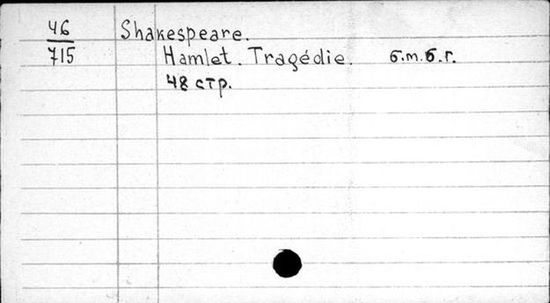 46 Shakespeare.
715 Hamlet. Tragédie. б.м.б.г.
48 стр.